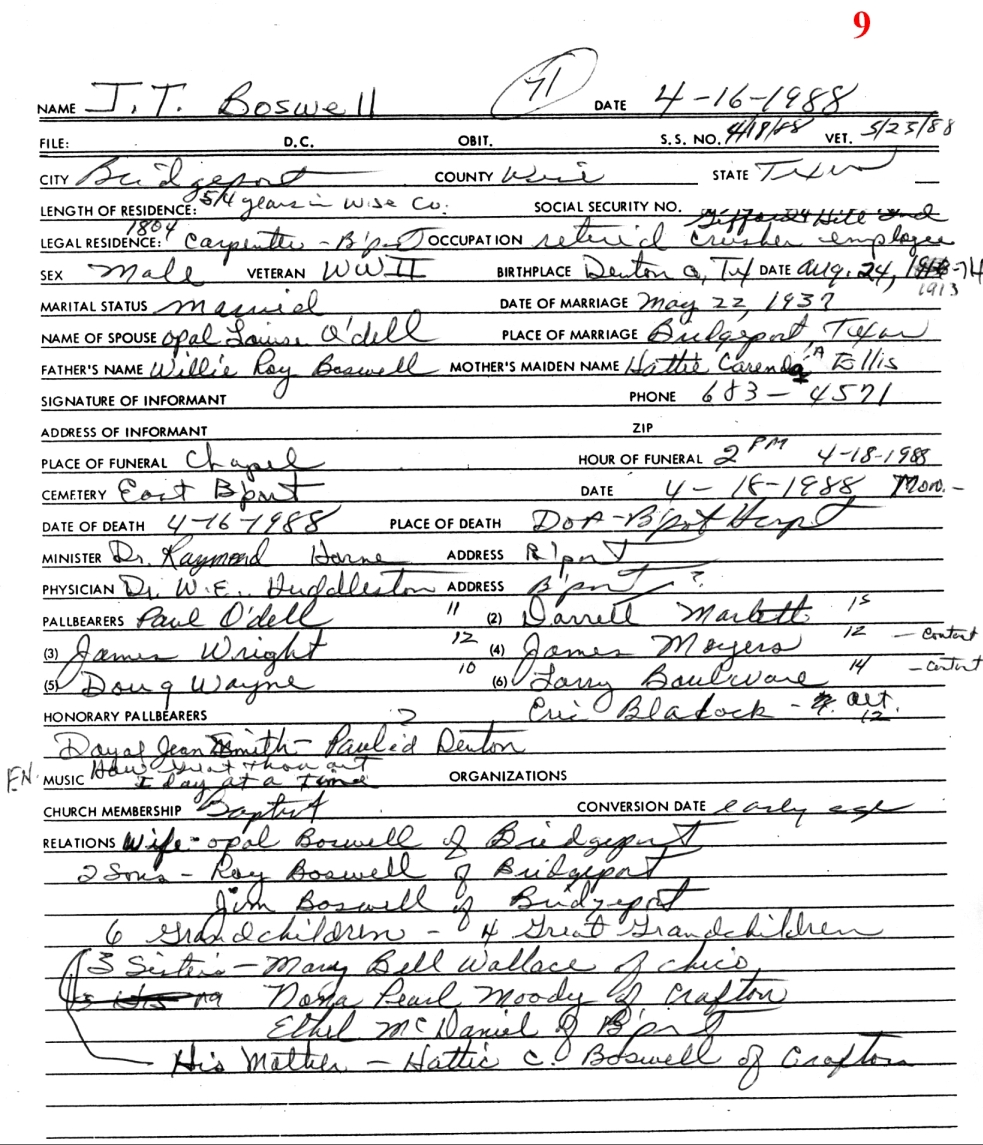 9
NAME J.T. Boswell 71 DATE 4-16-1988
FILE: D.C. OBIT. S.S. NO. 4/19/88 VET. 5/23/88
CITY Bridgeport COUNTY Wise STATE Texas
LENGTH OF RESIDENCE: 54 years in Wise Co. SOCIAL SECURITY NO.
LEGAL RESIDENCE: 1804 Carpenter - B'port OCCUPATION retired crusher employee
SEX Male VETERAN WWII BIRTHPLACE Denton Co, Tx DATE Aug. 24, 1913 -74
MARITAL STATUS Married DATE OF MARRIAGE May 22, 1937
NAME OF SPOUSE Opal Louise O'dell PLACE OF MARRIAGE Bridgeport, Texas
FATHER'S NAME Willie Roy Boswell MOTHER'S MAIDEN NAME Hattie Ellis
SIGNATURE OF INFORMANT PHONE 683-4571
ADDRESS OF INFORMANT ZIP
PLACE OF FUNERAL Chapel HOUR OF FUNERAL 2 PM 4-18-1988
CEMETERY East B'port DATE 4-18-1988 Mon.-
DATE OF DEATH 4-16-1988 PLACE OF DEATH DOA-B'port Hospt
MINISTER Dr. Raymond Horne ADDRESS B'port
PHYSICIAN Dr. W.E. Huddleston ADDRESS B'port ?
PALLBEARERS Paul O'dell 11 (2) Darrell Marlett 15
(3) James Wright 12 (4) James Moyers 12 - contact
(5) Doug Wayne 10 (6) Larry Boulware 14 - contact
HONORARY PALLBEARERS ? Eric Blalock - alt. 12
Jean Smith - Denton
EN. MUSIC How Great thou art ORGANIZATIONS
1 day at a time
CHURCH MEMBERSHIP Baptist CONVERSION DATE early age
RELATIONS Wife - Opal Boswell of Bridgeport
2 Sons - Roy Boswell of Bridgeport
Jim Boswell of Bridgeport
6 Grandchildren - 4 Great Grandchildren
3 Sisters - Mary Bell Wallace of Chico
Nona Pearl Moody of Crafton
Ethel McDaniel of B'port
His Mother - Hattie C. Boswell of Crafton